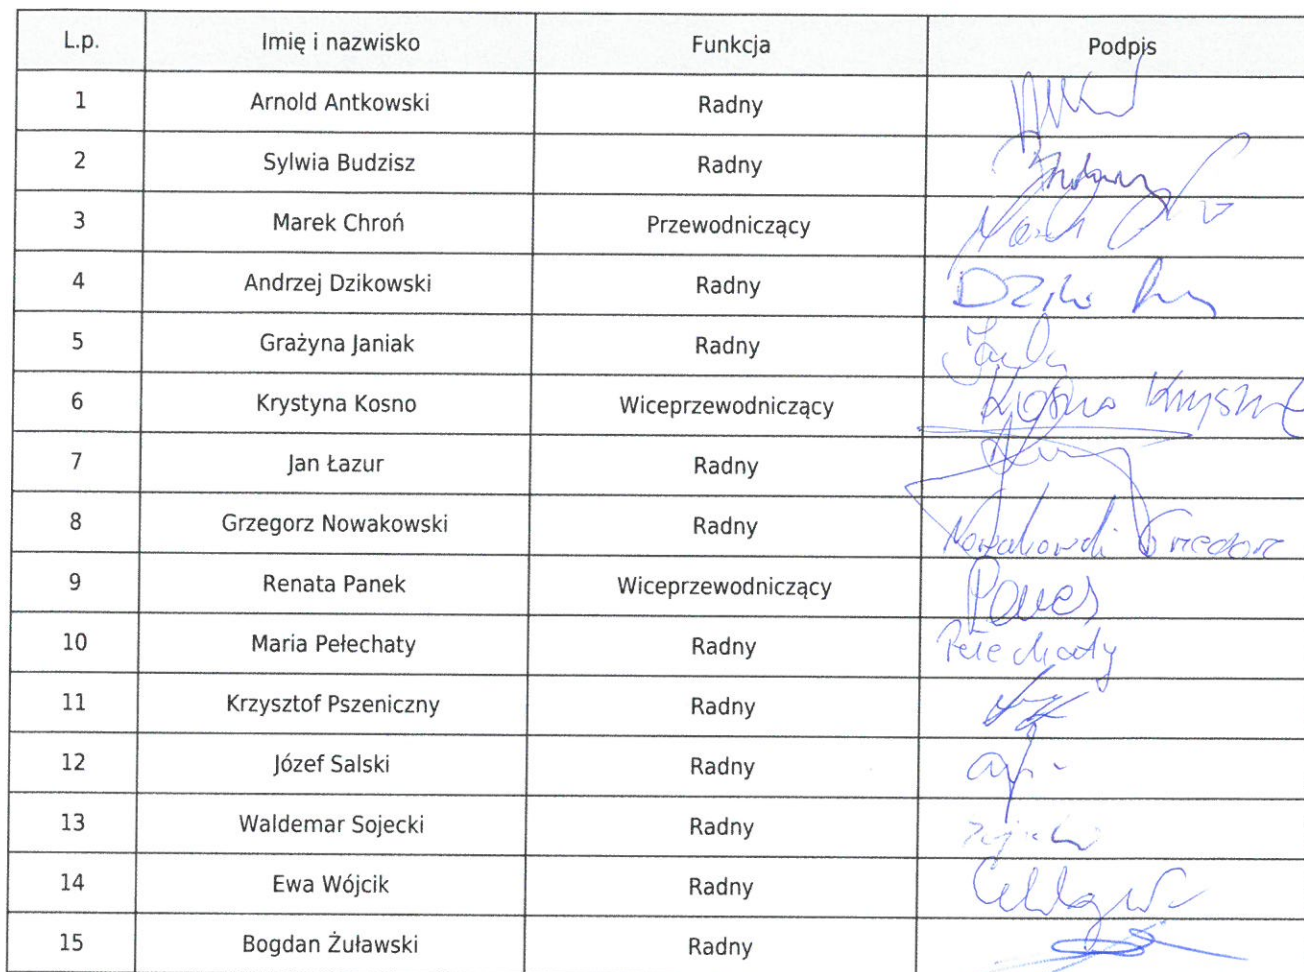 L.p. Imię i nazwisko Funkcja Podpis
1 Arnold Antkowski Radny
2 Sylwia Budzisz Radny
3 Marek Chroń Przewodniczący Marek
4 Andrzej Dzikowski Radny
5 Grażyna Janiak Radny
6 Krystyna Kosno Wiceprzewodniczący Kosno
7 Jan Łazur Radny
8 Grzegorz Nowakowski Radny Nowakowski
9 Renata Panek Wiceprzewodniczący
10 Maria Pełechaty Radny Pełechaty
11 Krzysztof Pszeniczny Radny
12 Józef Salski Radny
13 Waldemar Sojecki Radny
14 Ewa Wójcik Radny
15 Bogdan Żuławski Radny